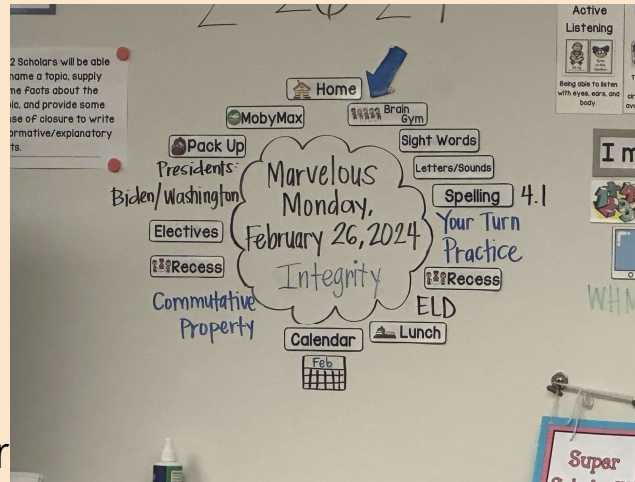 2 Scholars will be able
name a topic, supply
me facts about the
ic, and provide some
se of closure to write
ormative/explanatory
ts.
Active
Listening
Being able to listen
with eyes, ears, and
body.
Home
Brain
Gym
MobyMax
Sight Words
Pack Up
Letters/Sounds
Presidents:
Biden/Washington
Spelling 4.1
Your Turn
Practice
Electives
Recess
Recess
Commutative
Property
ELD
Lunch
Calendar
Feb
Marvelous
Monday,
February 26, 2024
Integrity
I m
WHM
Super
r